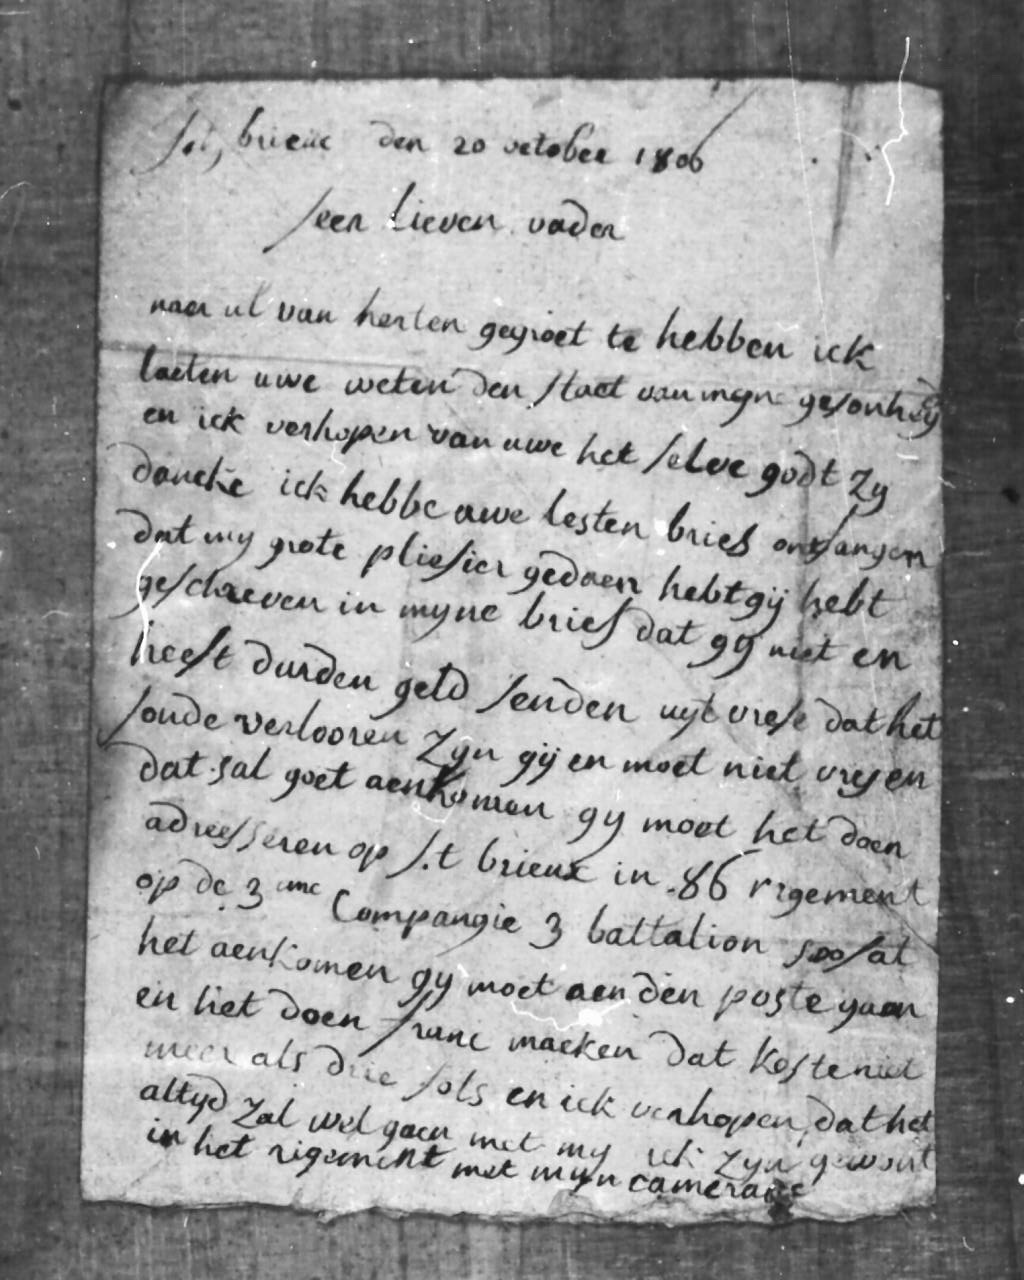 St, brieux den 20 october 1806
seer lieven vader
naer ul van herten gegroet te hebben ick
laeten uwe weten den staet van myne gesonheyd
en ick verhopen van uwe het selve godt zy
dancke ick hebbe uwe lesten brief ontfangen
dat my grote pliesier gedaen hebt gij hebt
geschreven in myne brief dat gy niet en
heeft durden geld senden uyt vrese dat het
soude verlooren zyn gij en moet niet vresen
dat sal goet aenkomen gy moet het doen
adresseren op S.t brieux in 86 rigement
op de 3 eme Compangie 3 battalion soo sal
het aenkomen gy moet aen den poste gaen
en het doen franc maeken dat koste niet
meer als drie sols en ick verhopen dat het
altyd zal wel gaen met my ick zyn gewont
in het rigement met myn camerade